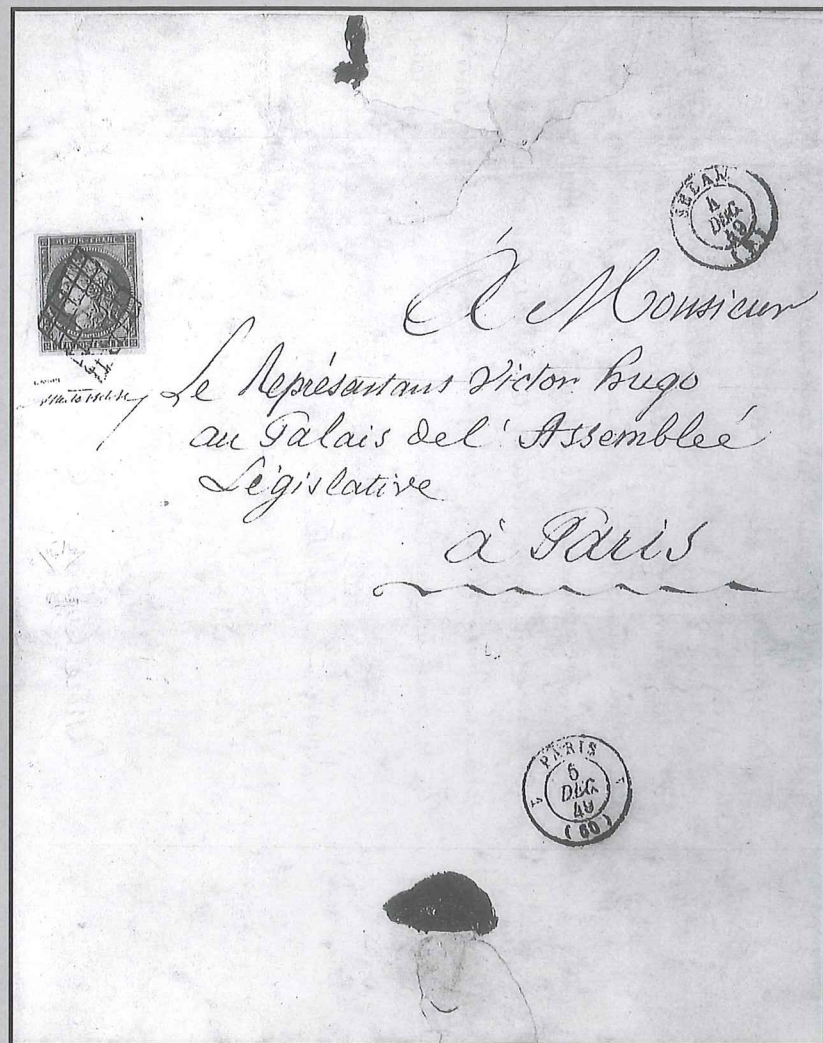 REPUB. FRANC.
4
DEC.
49
À Monsieur
Le Représentant Victor hugo
au Palais de l'Assembleé
Législative
à Paris
PARIS
6
DEC.
49
(60)